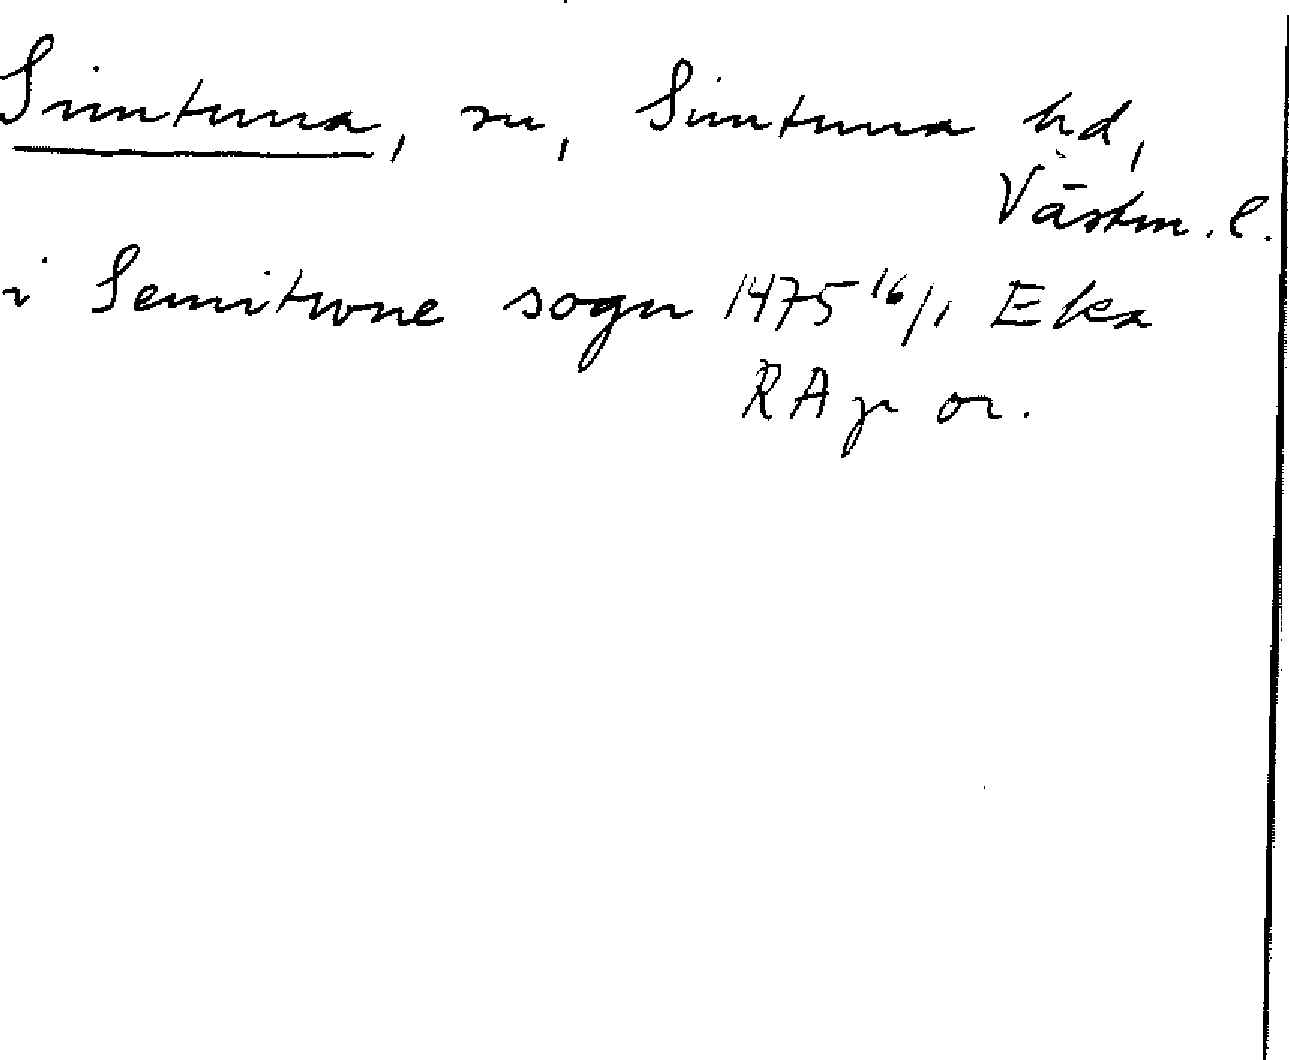 Simtuna, sn, Simtuna hd,
Västm. l.
i Semitwne sogn 1475 16/1 Eka
RAp or.